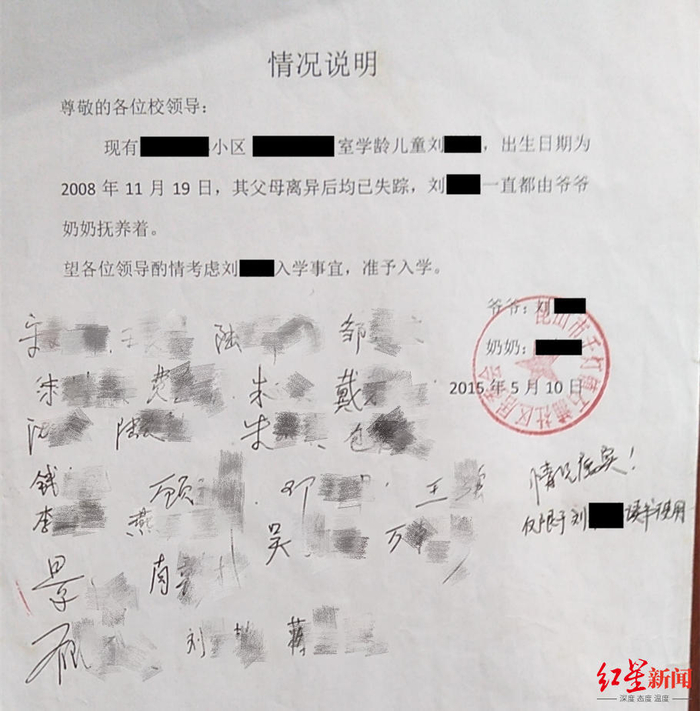 情况说明
尊敬的各位校领导：
现有 小区 室学龄儿童刘 ，出生日期为
2008 年 11 月 19 日，其父母离异后均已失踪，刘 一直都由爷爷
奶奶抚养着。
望各位领导酌情考虑刘 入学事宜，准予入学。
爷爷：刘
奶奶：
2015 年 5 月 10 日
昆山市千灯镇 社区居 会
陆 邹
朱 朱 戴
沈 陆 朱 包
钱 顾 邓 王
李 燕
吴 万
南
刘 蒋
情况属实！
仅限于刘 读书使用
红星新闻
深度 态度 温度